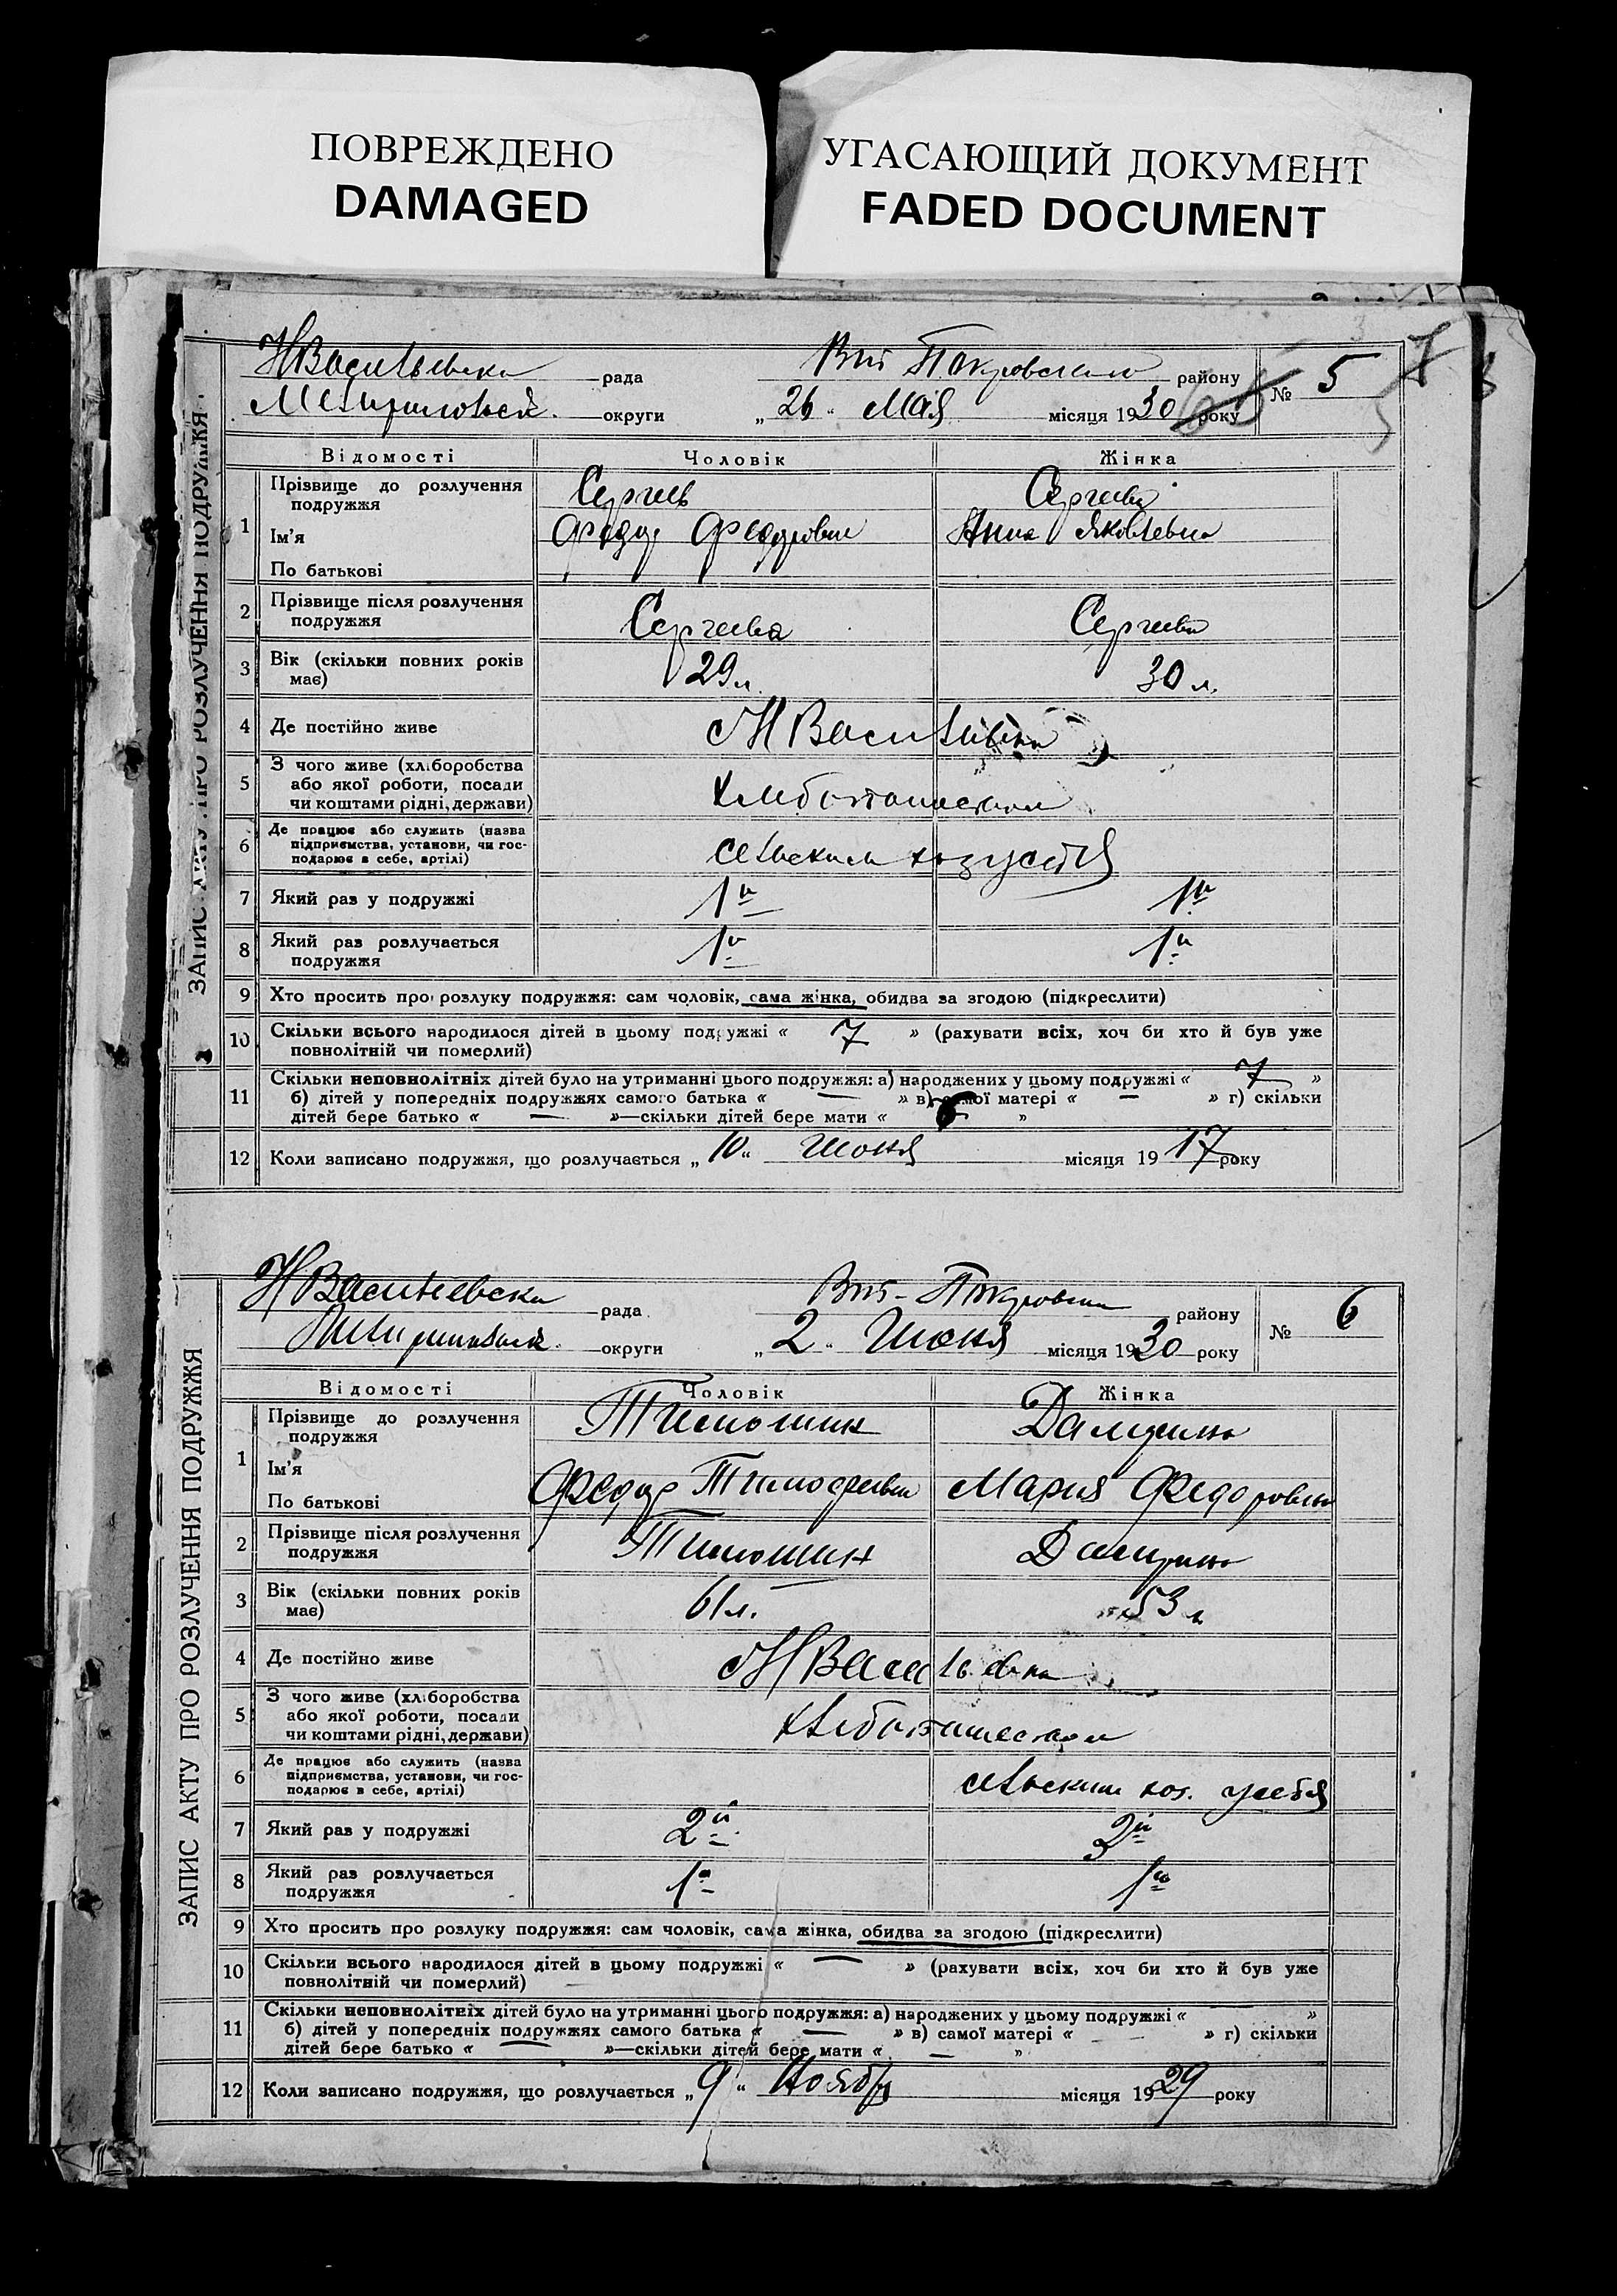 ПОВРЕЖДЕНО
DAMAGED
УГАСАЮЩИЙ ДОКУМЕНТ
FADED DOCUMENT
ЗАПИС АКТУ ПРО РОЗЛУЧЕННЯ ПОДРУЖЖЯ
НВасильевска рада Вит Покровского району № 5 7
округи „26“ Мая місяця 1930 року
Відомості Чоловік Жінка
1 Прізвище до розлучення подружжя Сергеев Сергеева
Ім'я Федор Федорович Анна Яковлевна
По батькові
2 Прізвище після розлучення подружжя Сергеева Сергеева
3 Вік (скільки повних років має) 29 л. 30 л.
4 Де постійно живе НВасильевка
5 З чого живе (хліборобства або якої роботи, посади чи коштами рідні, держави) хлебопашеством
6 Де працює або служить (назва підприємства, установи, чи господарює в себе, артілі)
7 Який раз у подружжі 1й 1й
8 Який раз розлучається подружжя 1й 1й
9 Хто просить про розлуку подружжя: сам чоловік, сама жінка, обидва за згодою (підкреслити)
10 Скільки всього народилося дітей в цьому подружжі « 7 » (рахувати всіх, хоч би хто й був уже
повнолітній чи померлий)
11 Скільки неповнолітніх дітей було на утриманні цього подружжя: а) народжених у цьому подружжі « 7 »
б) дітей у попередніх подружжях самого батька « — » в) самої матері « — » г) скільки
дітей бере батько « — »—скільки дітей бере мати « 6 »
12 Коли записано подружжя, що розлучається „10“ Июня місяця 1917 року
ЗАПИС АКТУ ПРО РОЗЛУЧЕННЯ ПОДРУЖЖЯ
НВасильевска рада Вит-Покровски району № 6
округи „2“ Июня місяця 1930 року
Відомості Чоловік Жінка
1 Прізвище до розлучення подружжя Тимошин
Ім'я Федор Тимофеевич Мария Федоровна
По батькові
2 Прізвище після розлучення подружжя Тимошин
3 Вік (скільки повних років має) 61 л. 53 л
4 Де постійно живе НВасильевка
5 З чого живе (хліборобства або якої роботи, посади чи коштами рідні, держави) хлебопашеством
6 Де працює або служить (назва підприємства, установи, чи господарює в себе, артілі) сельским хоз. у себя
7 Який раз у подружжі 2й 2й
8 Який раз розлучається подружжя 1й 1й
9 Хто просить про розлуку подружжя: сам чоловік, сама жінка, обидва за згодою (підкреслити)
10 Скільки всього народилося дітей в цьому подружжі « — » (рахувати всіх, хоч би хто й був уже
повнолітній чи померлий)
11 Скільки неповнолітніх дітей було на утриманні цього подружжя: а) народжених у цьому подружжі « — »
б) дітей у попередніх подружжях самого батька « — » в) самої матері « — » г) скільки
дітей бере батько « — »—скільки дітей бере мати « — »
12 Коли записано подружжя, що розлучається „9“ Ноябр місяця 1929 року